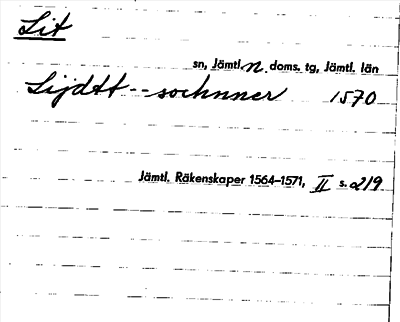 Lit
sn, Jämtl. n. doms. tg, Jämtl. län
Lijdtt -- sochnner 1570
Jämtl. Räkenskaper 1564–1571, II s. 219